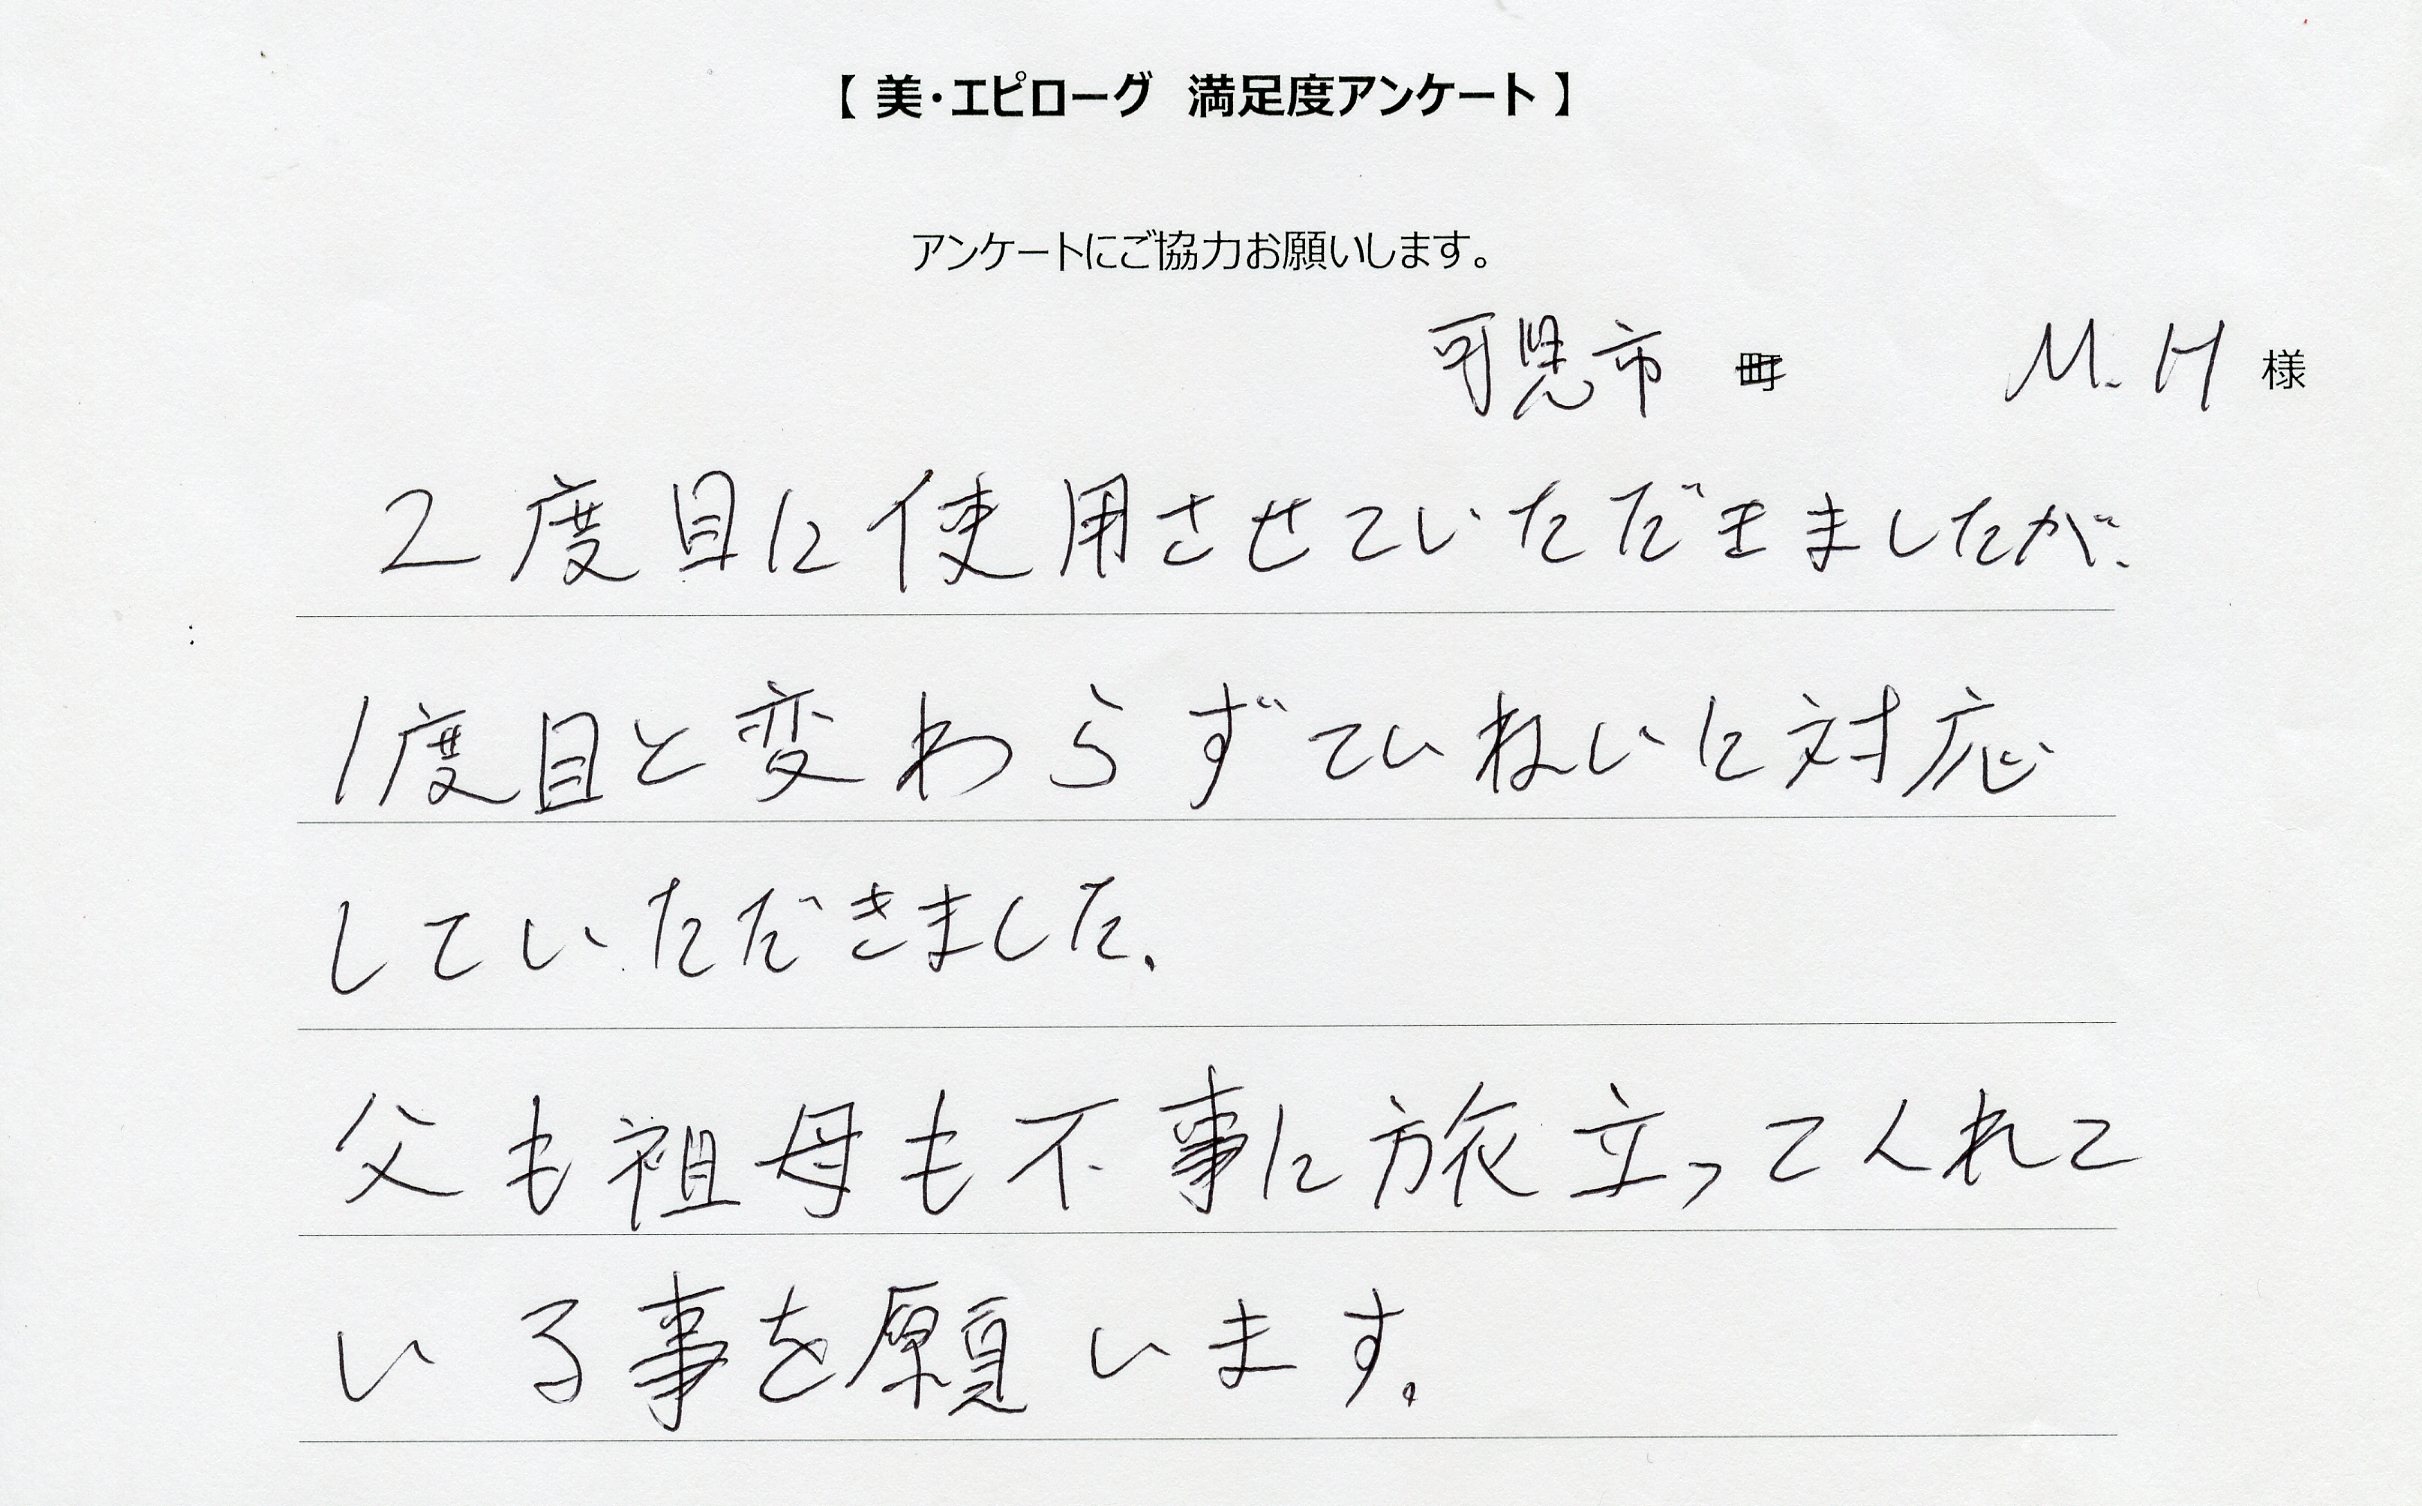 【 美・エピローグ 満足度アンケート 】
アンケートにご協力お願いします。
可児市 町 M.H 様
2度目に使用させていただきましたが、
1度目と変わらずていねいに対応
していただきました。
父も祖母も不事に旅立ってくれて
いる事を願います。